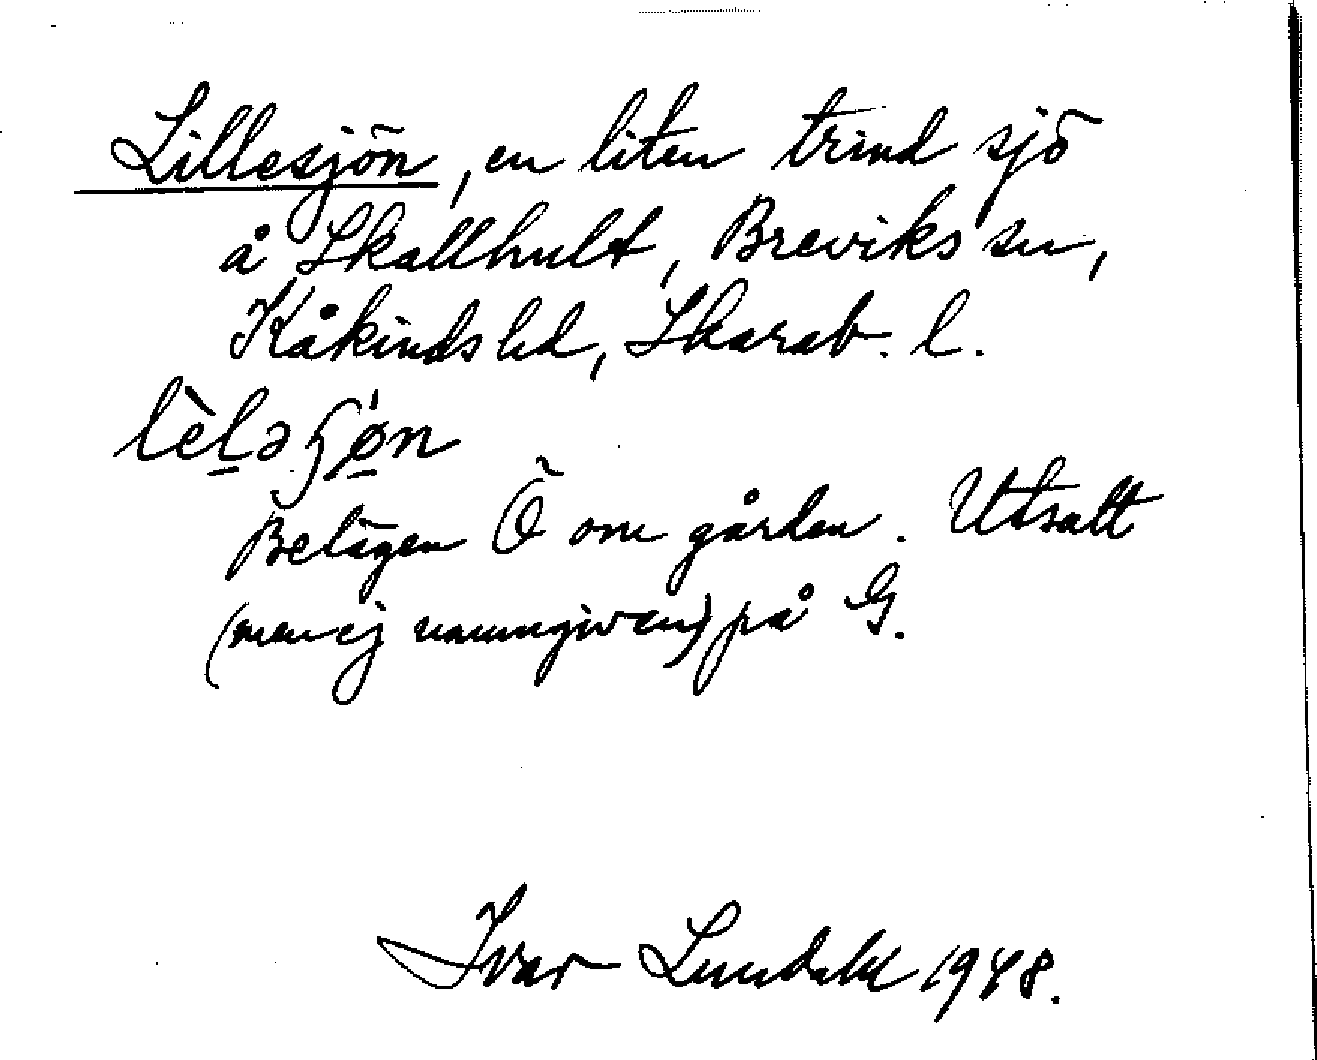 Lillesjön, en liten trind sjö
å Skallhult, Breviks sn,
Kåkinds hd, Skarab. l.
Belägen Ö om gården. Utsatt
(men ej namngiven) på G.
Ivar Lundahl 1948.